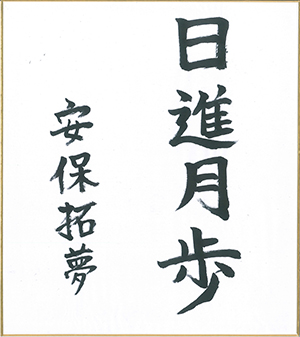 日進月歩
安保拓夢